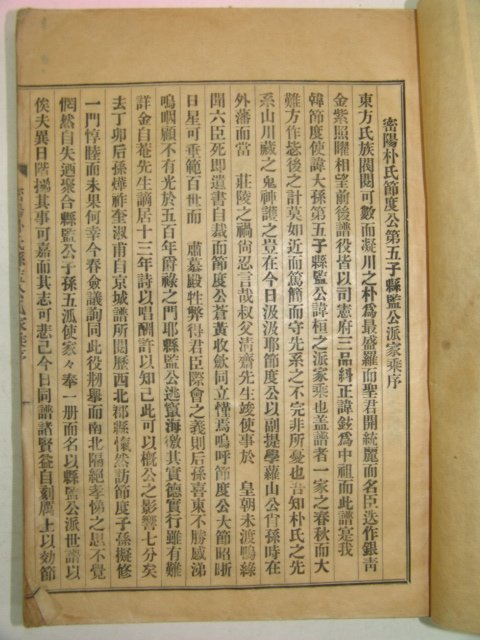 密陽朴氏節度公第五子縣監公派家乘序
東方氏族閥閱可數而凝川之朴爲最盛羅而聖君開統麗而名臣迭作銀靑
金紫照曜相望前後譜役皆以司憲府三品糾正諱鉉爲中祖而此譜寔我
韓節度使諱大孫第五子縣監公諱桓之派家乘也盖譜者一家之春秋而大
難方作毖後之計莫如近而篤簡而守先系之不完非所憂也吾知朴氏之先
系山川藏之鬼神護之豈在今日汲汲耶節度公以副提學蘿山公肖孫時在
外藩而當 莊陵之禍尙忍言哉叔父淸齋先生竣使事於 皇朝未渡鴨綠
聞六臣死卽遺書自裁而節度公蒼黃收斂同立慬焉嗚呼節度公大節昭晣
日星可垂範百世而 肅慕嚴牲幣得君臣際會之義則后孫喜東不勝感涕
鳴咽顧不有光於五百年爵祿之門耶縣監公逃竄海徼其實德實行雖有難
詳金自菴先生謫居十三年詩以唱酬許以知己此可以槪公之影響七分矣
去丁卯后孫燁祚奎淑甫自京城譜所閱歷西北郡縣愾然訪節度子孫擬修
一門惇睦而未果何幸今春僉議詢同此役刱擧而南北隔絕孝悌之思不覺
惘然自失迺聚合縣監公子孫五派使家々奉一册而名以縣監公派世譜以
俟夫異日階梯其事可嘉而其志可悲已今日同譜諸賢盍自刻勵上以効節